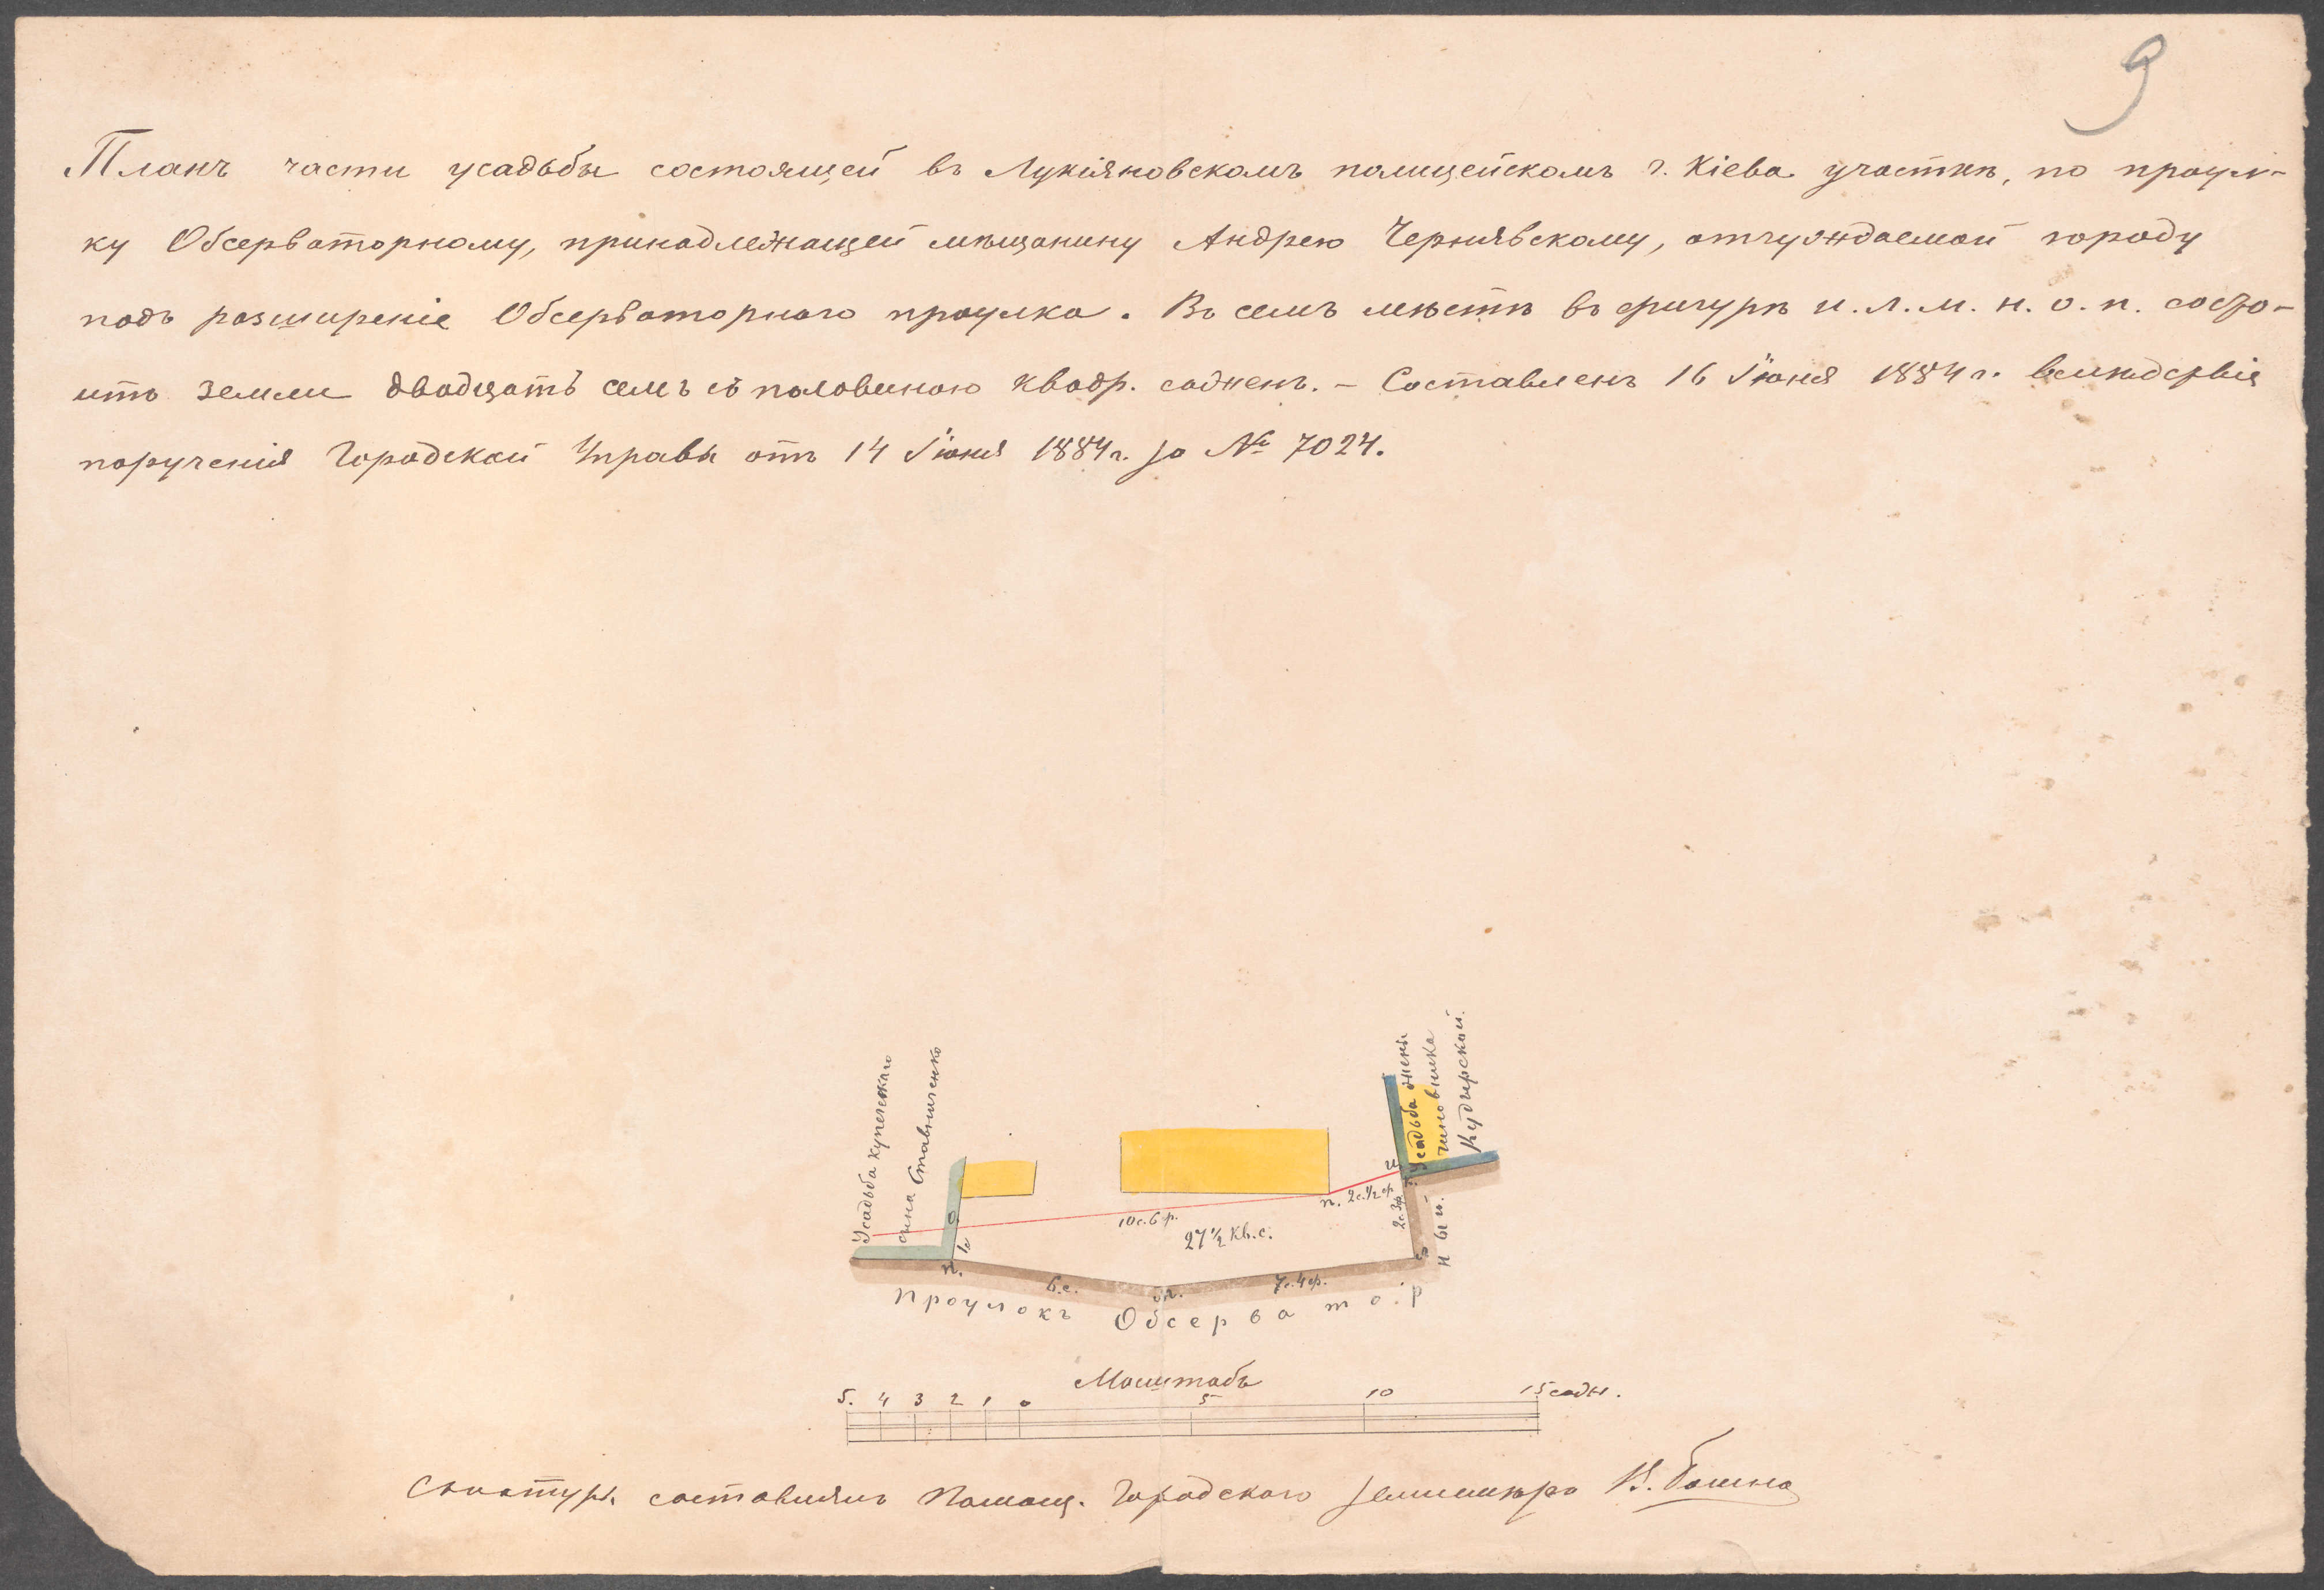 9
Планъ части усадьбы состоящей въ Лукіяновскомъ полицейскомъ г. Кіева участкѣ, по проул-
ку Обсерваторному, принадлежащей мѣщанину Андрею Чернявскому, отчуждаемой городу
подъ розширеніе Обсерваторного проулка. Въ семъ мѣстѣ въ фигурѣ и. л. м. н. о. п. состо-
итъ земли двадцать семъ съ половиною квадр. саженъ. – Составленъ 16 Іюня 1884 г. вслѣдствіе
порученія Городской Управы отъ 14 Іюня 1884 г. за № 7024.
Усадьба купеческаго
сына Ставниченко
Усадьба жены
чиновника
Кудигрской.
и.
п. 2с.1/2 ф.
2с.3ф.
10с.6ф.
27 1/2 кв.с.
о.
н.
6.с.
м.
7.с.4ф.
Проулокъ Обсерватор-
ный.
Масштабъ
5. 4 3 2 1 0 5 10 15 сажн.
Снатуры составлялъ Помощ. Городского землемѣра В.